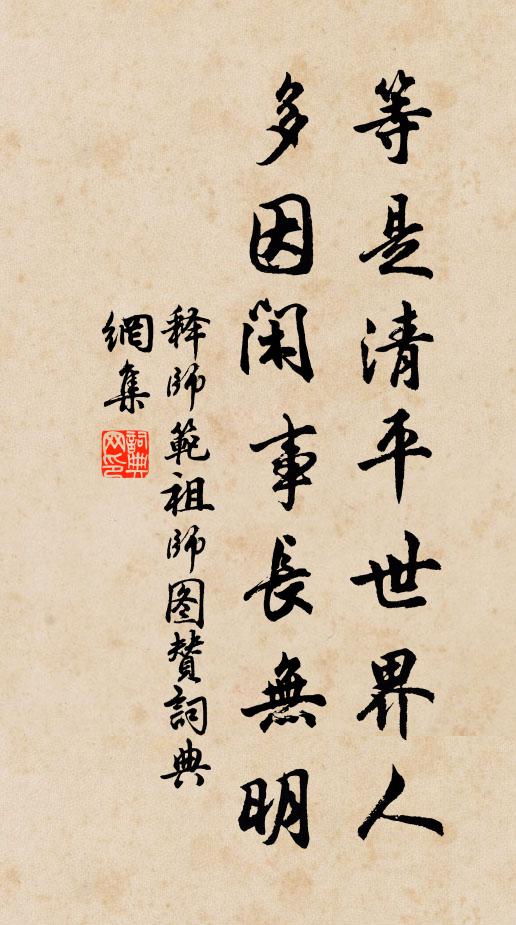 等是清平世界人
多因閑事長無明
释師範祖師图贊詞典
網集
詞典
网印